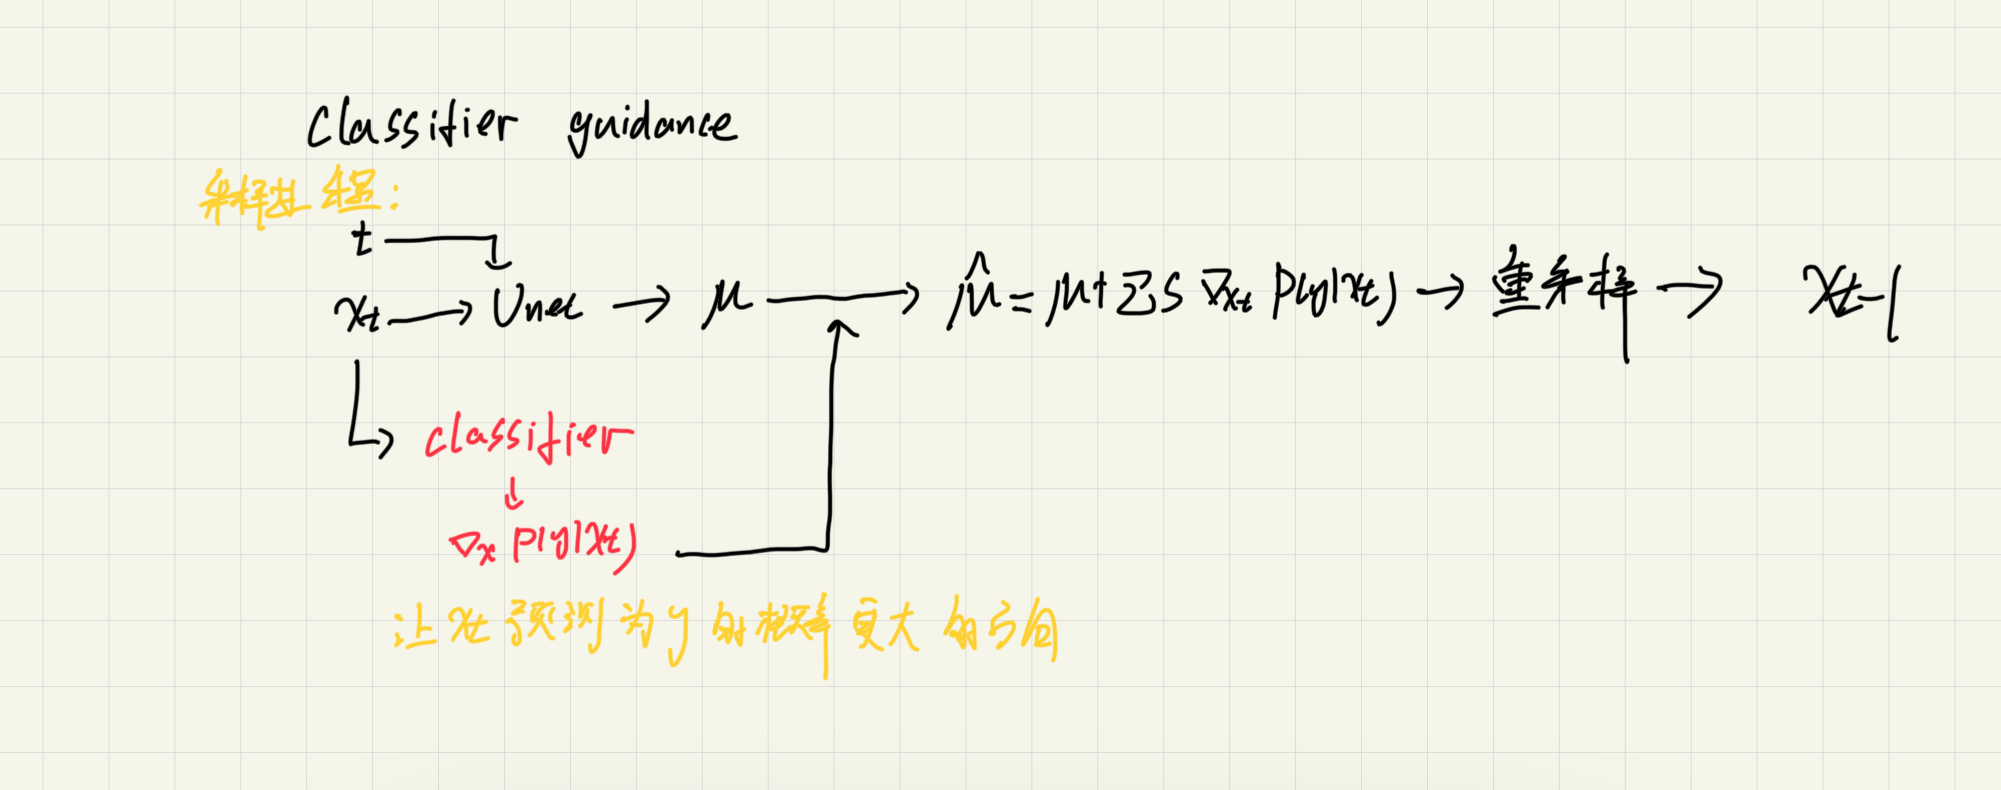 Classifier guidance
采样过程：
t
xt → Unet → μ → μ̂ = μ + ΣS ∇xt P(y|xt) → 重采样 → xt-1
classifier
↓
∇x P(y|xt)
让 xt 预测为 y 的概率更大的方向